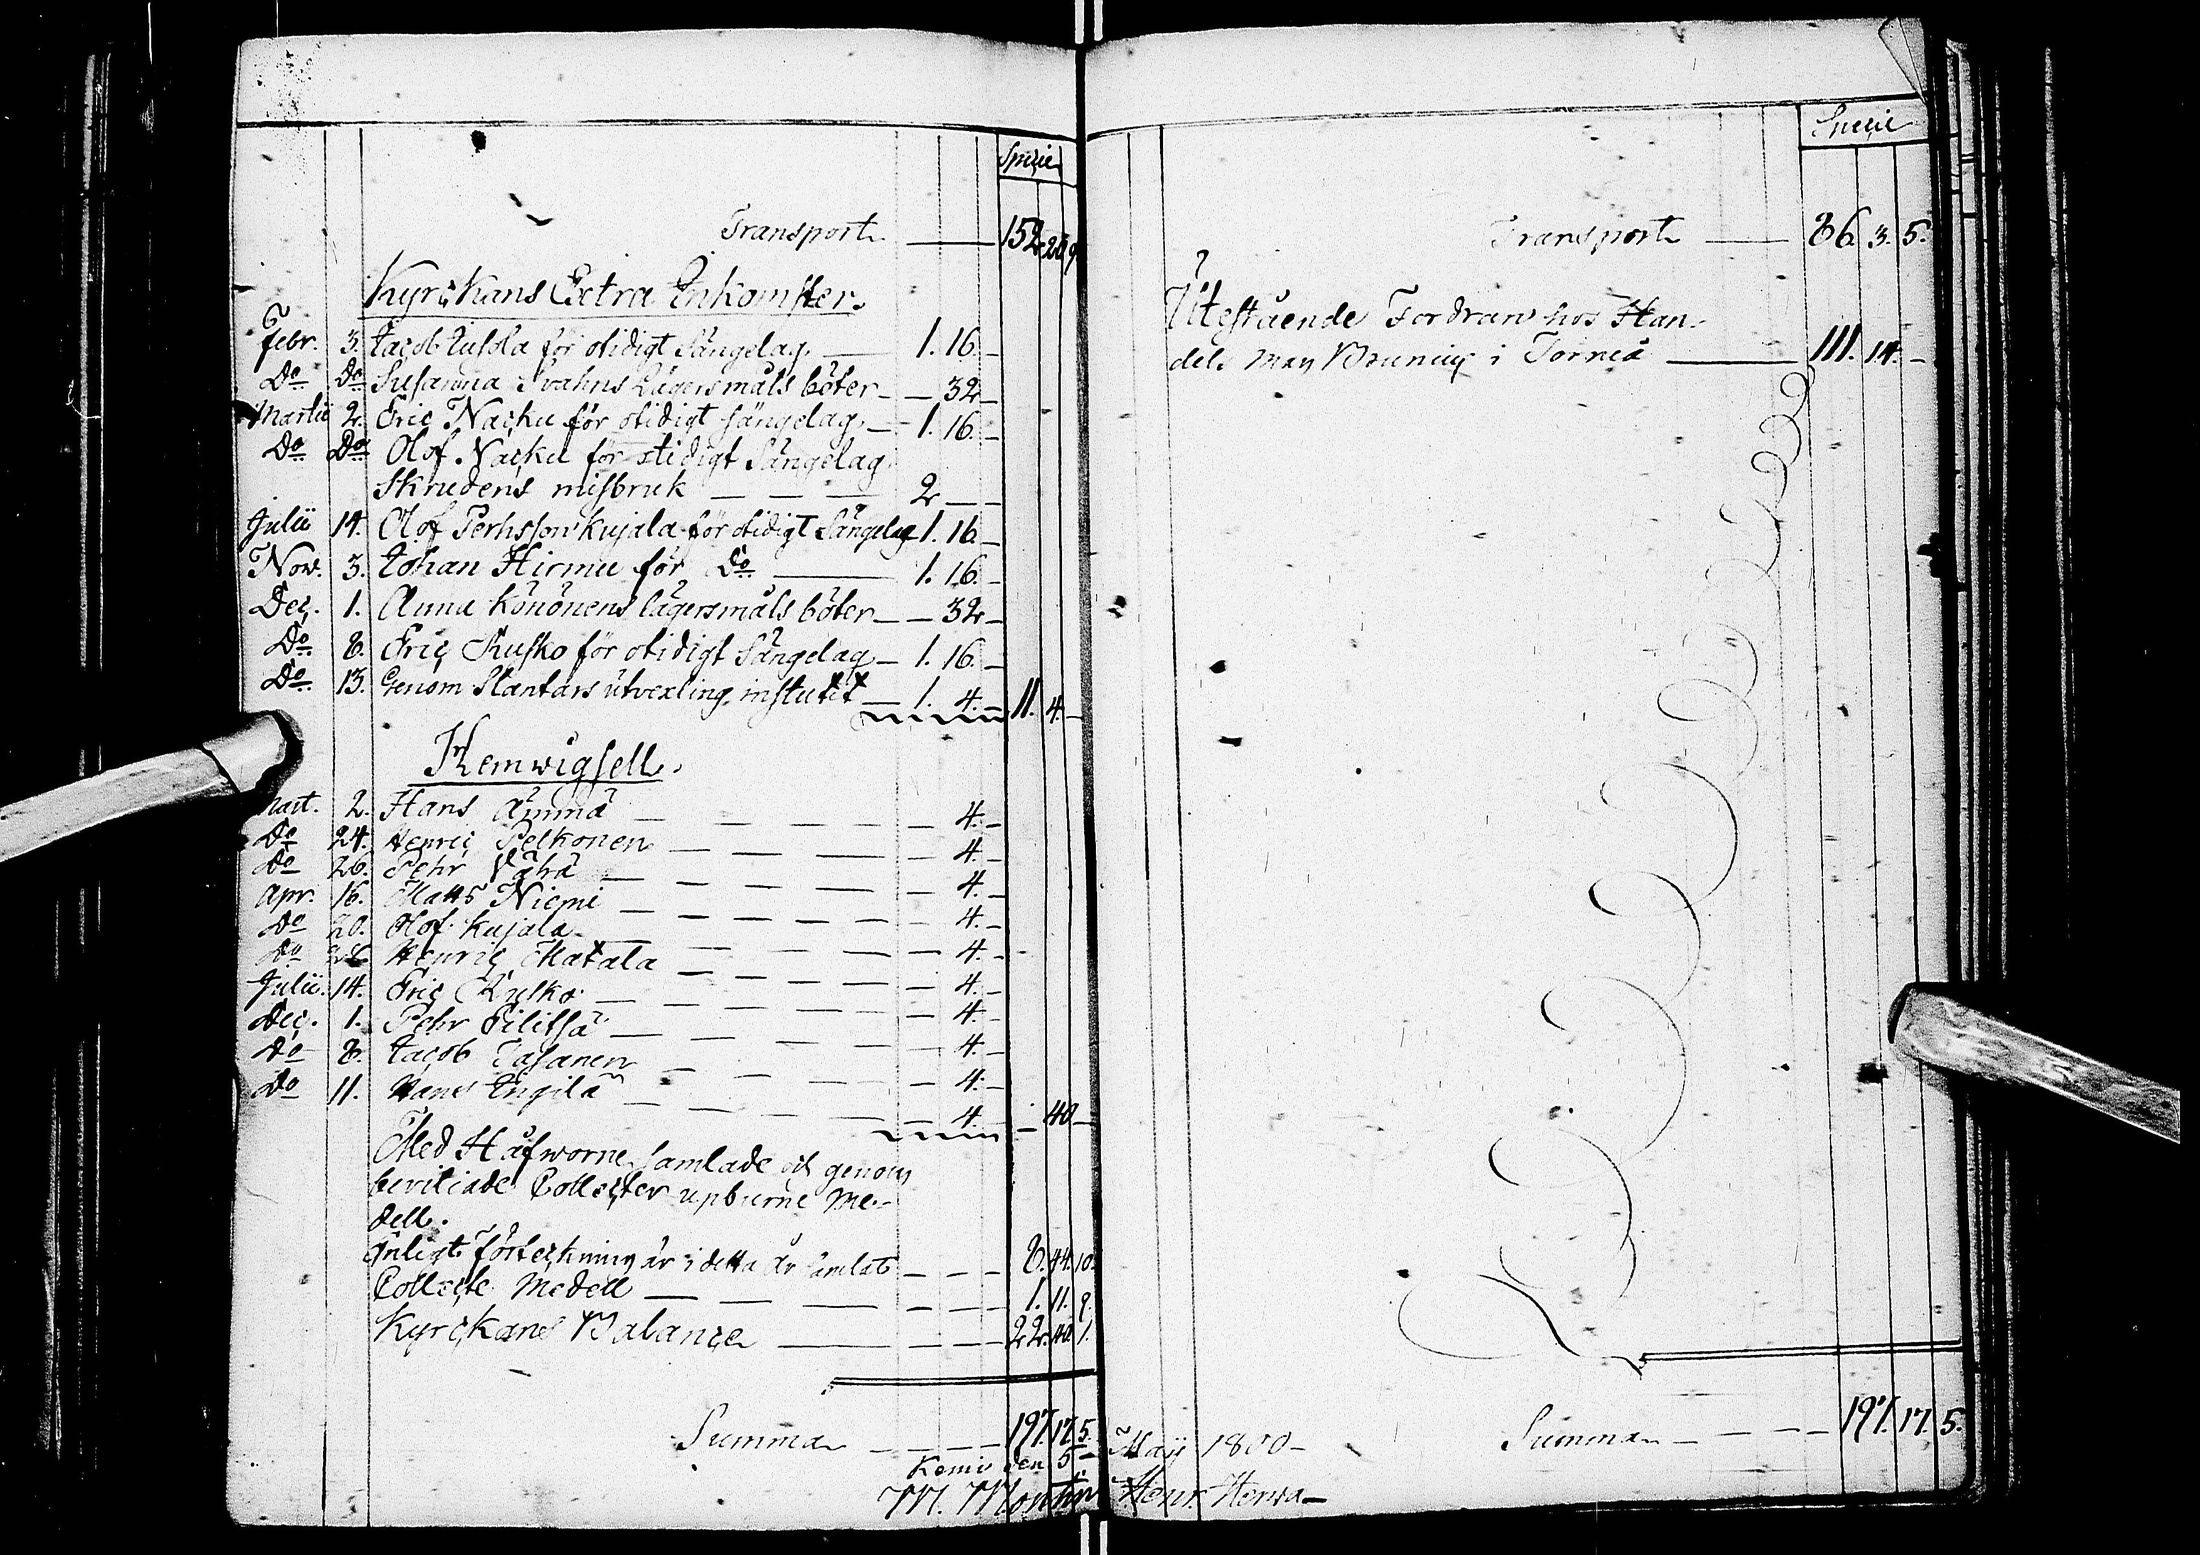 Specie
Transport — 152. 20 9
Kyrckans Extra Inkomster.
Febr. 3. Jacob för otidigt Sängelag. — 1. 16. –
Do Do Susanna Svahns Lägersmåls böter – – 32 –
Martii 2. Eric Nacku för otidigt sängelag. — 1. 16. –
Do Do Olof Nacku för otidigt Sängelag.
Skrudens misbruk — — — 2 – –
Julii 14. Olof Pehrsson Kujala för otidigt Sängelag 1. 16 –
Nov. 3. Johan Hirmu för Do — 1. 16. –
Dec. 1. Anna Könönens lägersmåls böter – – 32 –
Do 8. Eric Kusko för otidigt Sängelag – 1. 16. –
Do 13. Genom Slantars utvexling, — 1. 4. – 11. 4. –
Hemwigsell.
Mart. 2. Hans Ämmä — — — — 4. –
Do 24. Henric Pelkonen — — — — 4. –
Do 26. Pehr Vähä — — — — 4. –
Apr. 16. Matts Niemi — — — — 4. –
Do 20. Olof Kujala — — — — 4. –
Do Henric Matala — — — — 4. –
Julii. 14. Eric Kusko — — — — 4. –
Dec. 1. Pehr Pilitsä — — — — 4. –
Do 8. Jacob Tasanen — — — — 4. –
Do 11. Hans Engilä — — — — 4. – – 40 –
Med Håfworne samlade och genom
beviliade Collecter upburne Me-
dell.
Enligt förteckning är i detta år samlat — — — 8. 44. 10.
Collecte Medell — — — — — 1. 11. 9.
Kyrckans Balance — — — 22. 40. 1.
Summa — — — — 197. 17. 5.
Kemi den 5
M.
Specie
Transport — 86. 3. 5.
Utestående Fordran hos Han-
dels man Bruniig i Torneå — 111. 14. –
Summa — — — — 197. 17. 5.
Maij 1800 –
Henr. Herva –